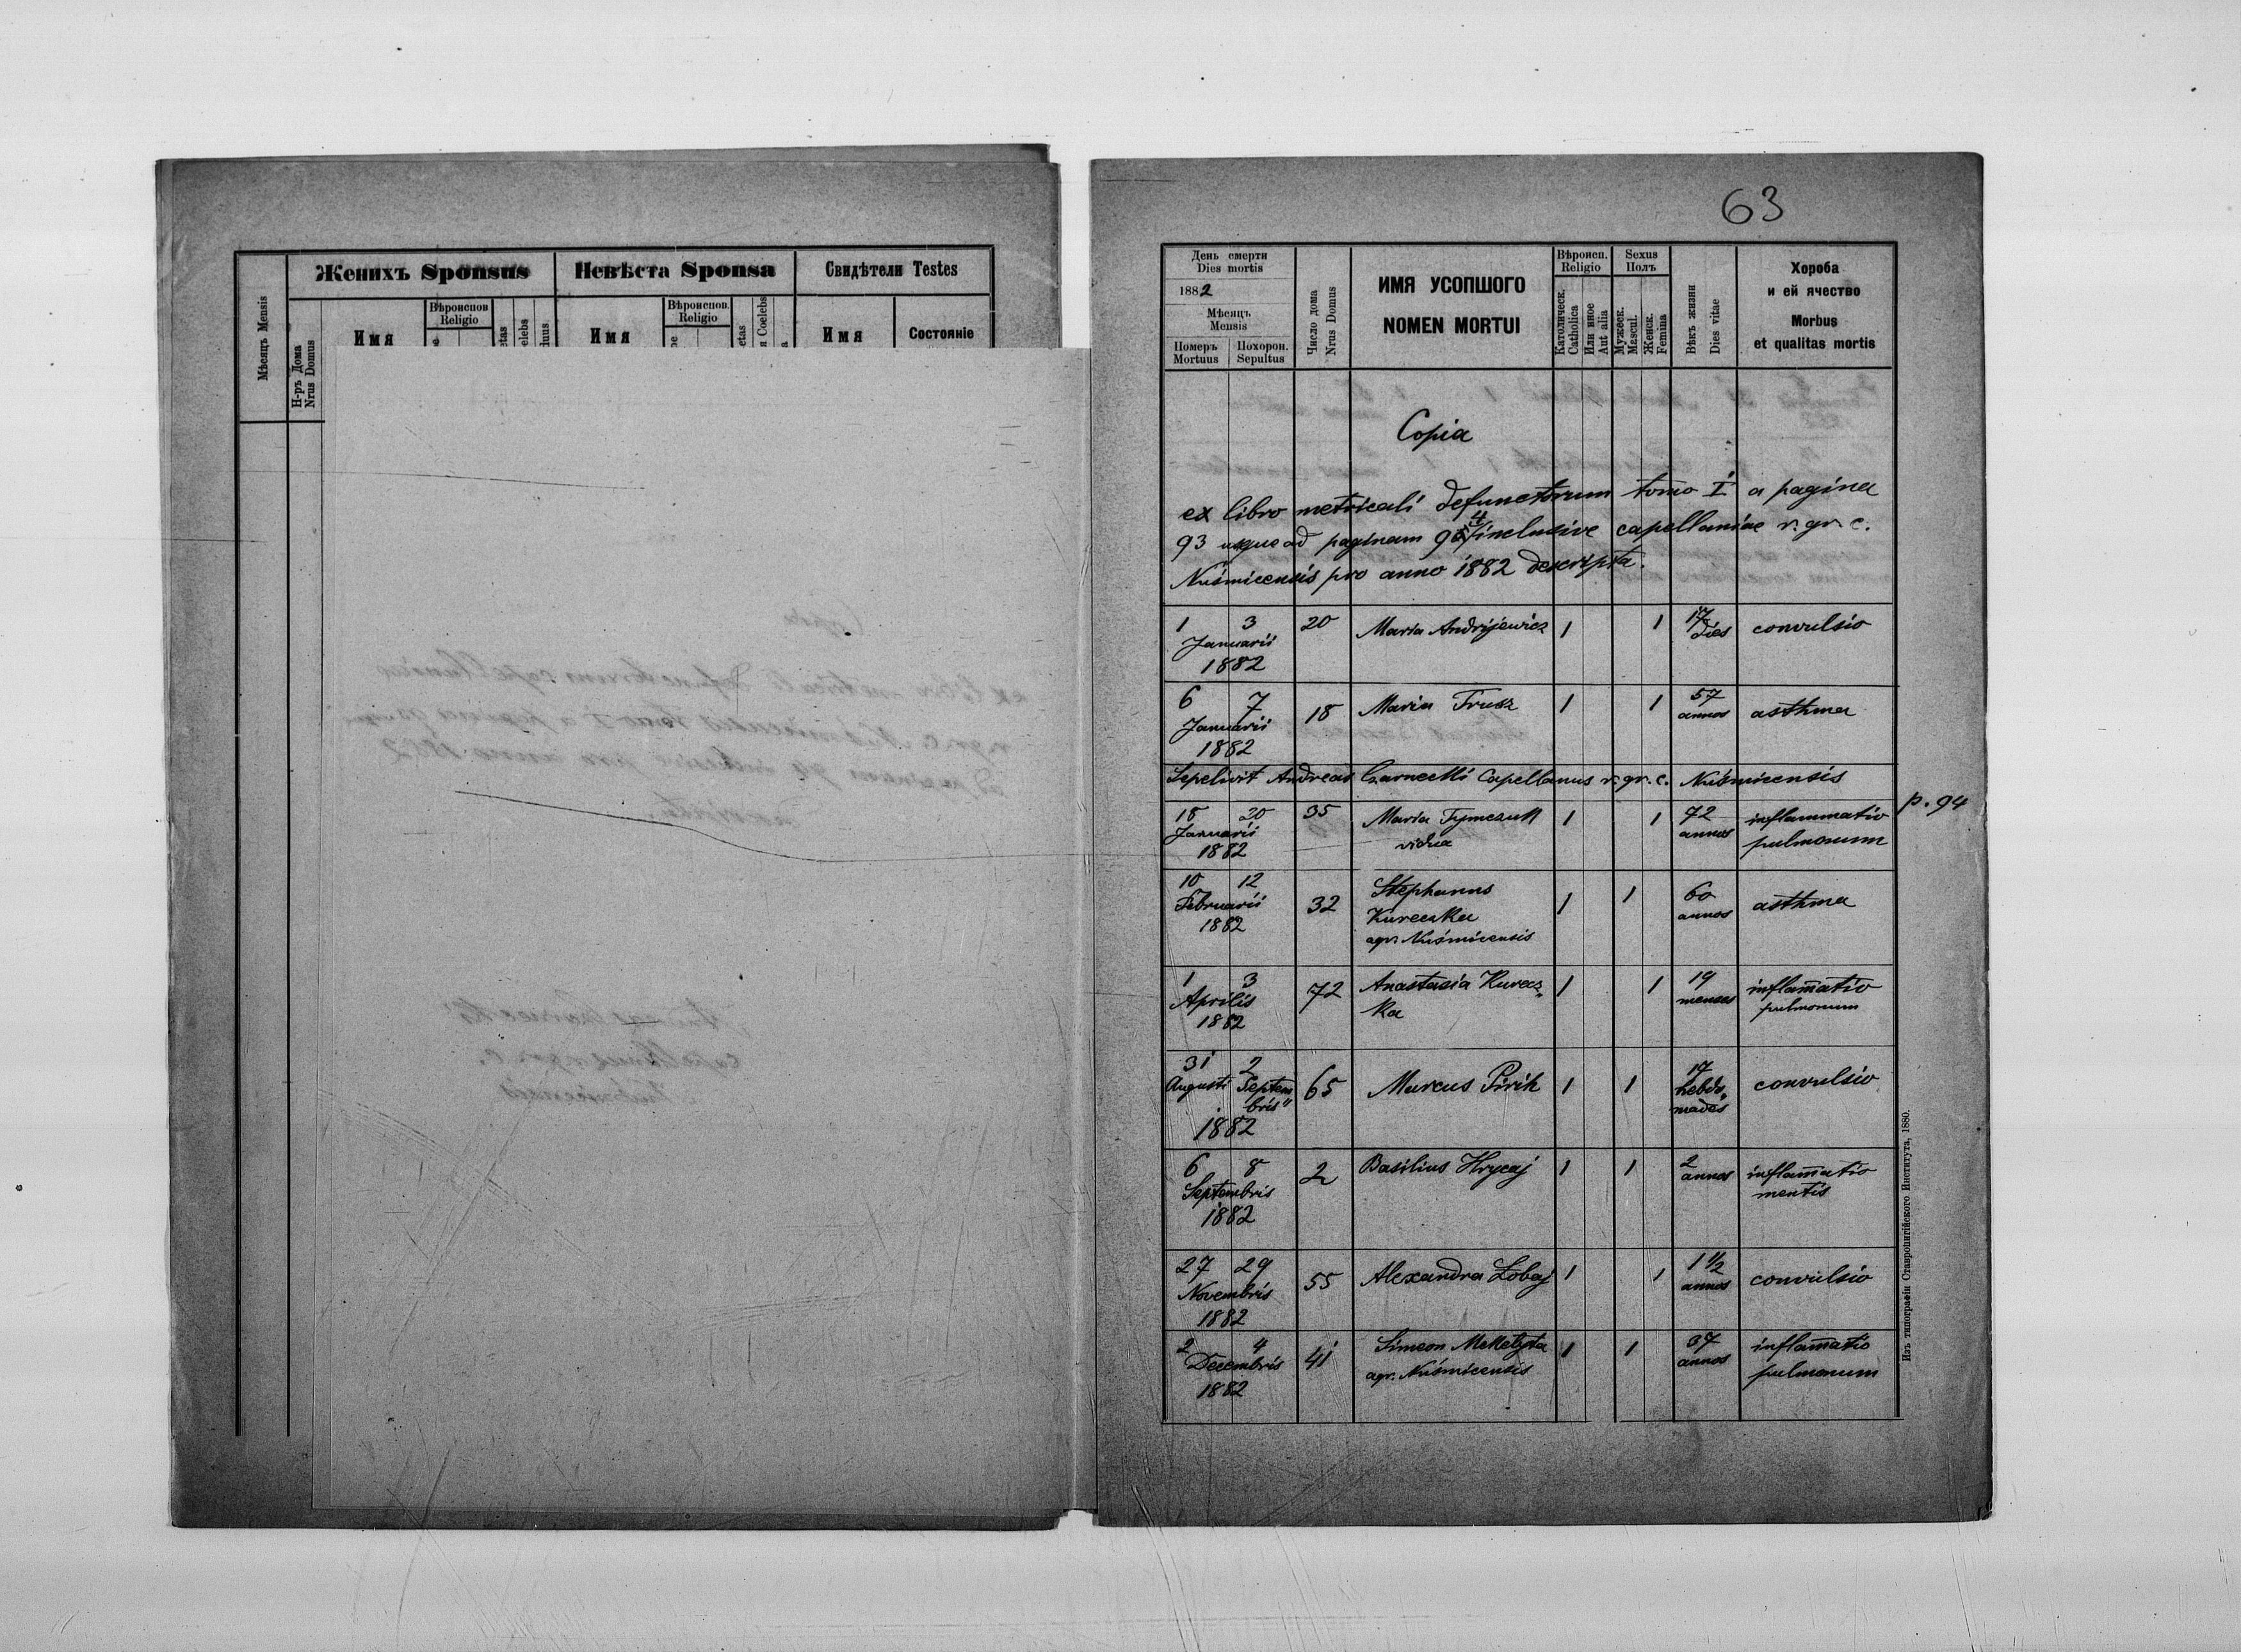 Женихъ Sponsus
Невѣста Sponsa
Свидѣтели Testes
Мѣсяцъ Mensis
Н-ръ Дома
Nrus Domus
Имя
Вѣроиспов
Religio
Имя
Вѣроиспов.
Religio
Coelebs
Имя
Состояніе
63
День смерти
Dies mortis
1882
Мѣсяцъ
Mensis
Номеръ
Mortuus
Похорон.
Sepultus
Число дома
Nrus Domus
ИМЯ УСОПШОГО
NOMEN MORTUI
Вѣроисп.
Religio
Католическ.
Catholica
Или иное
Aut alia
Sexus
Полъ
Мужеск.
Mascul.
Женск.
Femina
Вѣкъ жизни
Dies vitae
Хороба
и ей ячество
Morbus
et qualitas mortis
Copia
ex libro metricali defunctorum tomo I a pagina
93 usque ad paginam 94 inclusive capellaniae r. gr. c.
Nuśmicensis pro anno 1882 descripta.
1 3 20 Maria Andrijewicz 1 1 17 dies convulsio
Januarii
1882
6 7 18 Maria Trusz 1 1 57 annos asthma
Januarii
1882
Sepelivit Andreas Czarnecki Capellanus r. gr. c. Nuśmicensis
p. 94
18 20 35 Maria Tymczuk 1 1 72 annos inflammatio
Januarii vidua pulmonum
1882
10 12 32 Stephanus 1 1 60 annos asthma
Februarii Kureczka
1882 agr. Nuśmicensis
1 3 72 Anastasia Kurecz„ 1 1 19 menses inflam̄atio
Aprilis ka pulmonum
1882
31 2 65 Marcus Pirih 1 1 17 hebdo„ convulsio
Augusti Septem mades
bris"
1882
6 8 2 Basilius Hrycaj 1 1 2 annos inflam̄atio
Septembris mentis
1882
27 29 55 Alexandra Lobaj 1 1 1 1/2 annos convulsio
Novembris
1882
2 4 41 Simeon Meketyta 1 1 37 annos inflam̄atio
Decembris agr. Nuśmicensis pulmonum
1882
Изъ типографіи Ставропигійского Института, 1880.